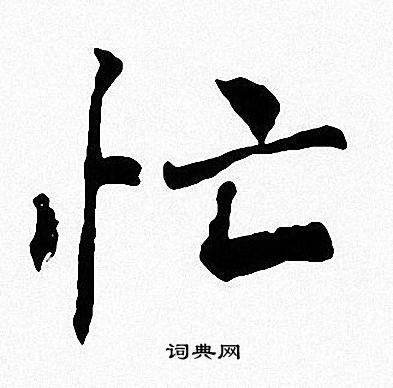 忙
词典网